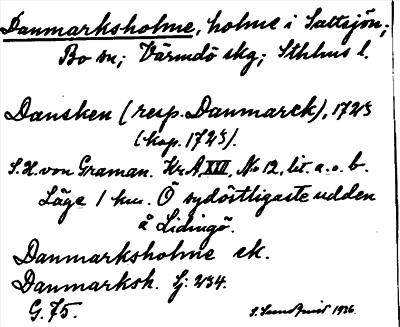 Danmarksholme, holme i Saltsjön;
Bo sn; Värmdö skg; Sthlms l.
Dansken (resp. Danmarck), 1725
(kop. 1725).
S.H. von Graman. Kr.A. XVII, No 12, lit. a. o. b.
Läge 1 km. Ö sydöstligaste udden
å Lidingö.
Danmarksholme ek.
Danmarksh. Gj: 234.
G. 75.
1926.